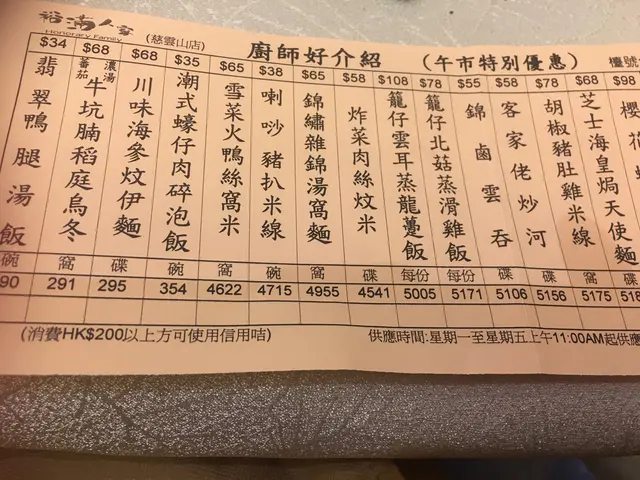 裕滿人家
Honorary Family
(慈雲山店)
廚師好介紹
(午市特別優惠)
檯號
$34 $68 $68 $35 $65 $38 $65 $58 $108 $78 $55 $58 $78 $68 $98
翡翠鴨腿湯飯
濃湯番茄牛坑腩稻庭烏冬
川味海參炆伊麵
潮式蠔仔肉碎泡飯
雪菜火鴨絲窩米
喇吵豬扒米線
錦繡雜錦湯窩麵
炸菜肉絲炆米
籠仔雲耳蒸龍躉飯
籠仔北菇蒸滑雞飯
錦鹵雲吞
客家佬炒河
胡椒豬肚雞米線
芝士海皇焗天使麵
櫻花
碗 窩 碟 碗 窩 碗 窩 碟 每份 每份 碟 碟 窩 碟
90 291 295 354 4622 4715 4955 4541 5005 5171 5106 5156 5175
(消費HK$200以上方可使用信用咭)
供應時間:星期一至星期五上午11:00AM起供應